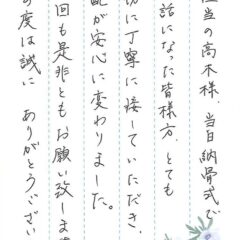 担当の高木様、当日納骨式で
話になった皆様方、とても
切に丁寧に接していただき、
配が安心に変わりました。
回も是非ともお願い致しま
の度は誠に ありがとうござい